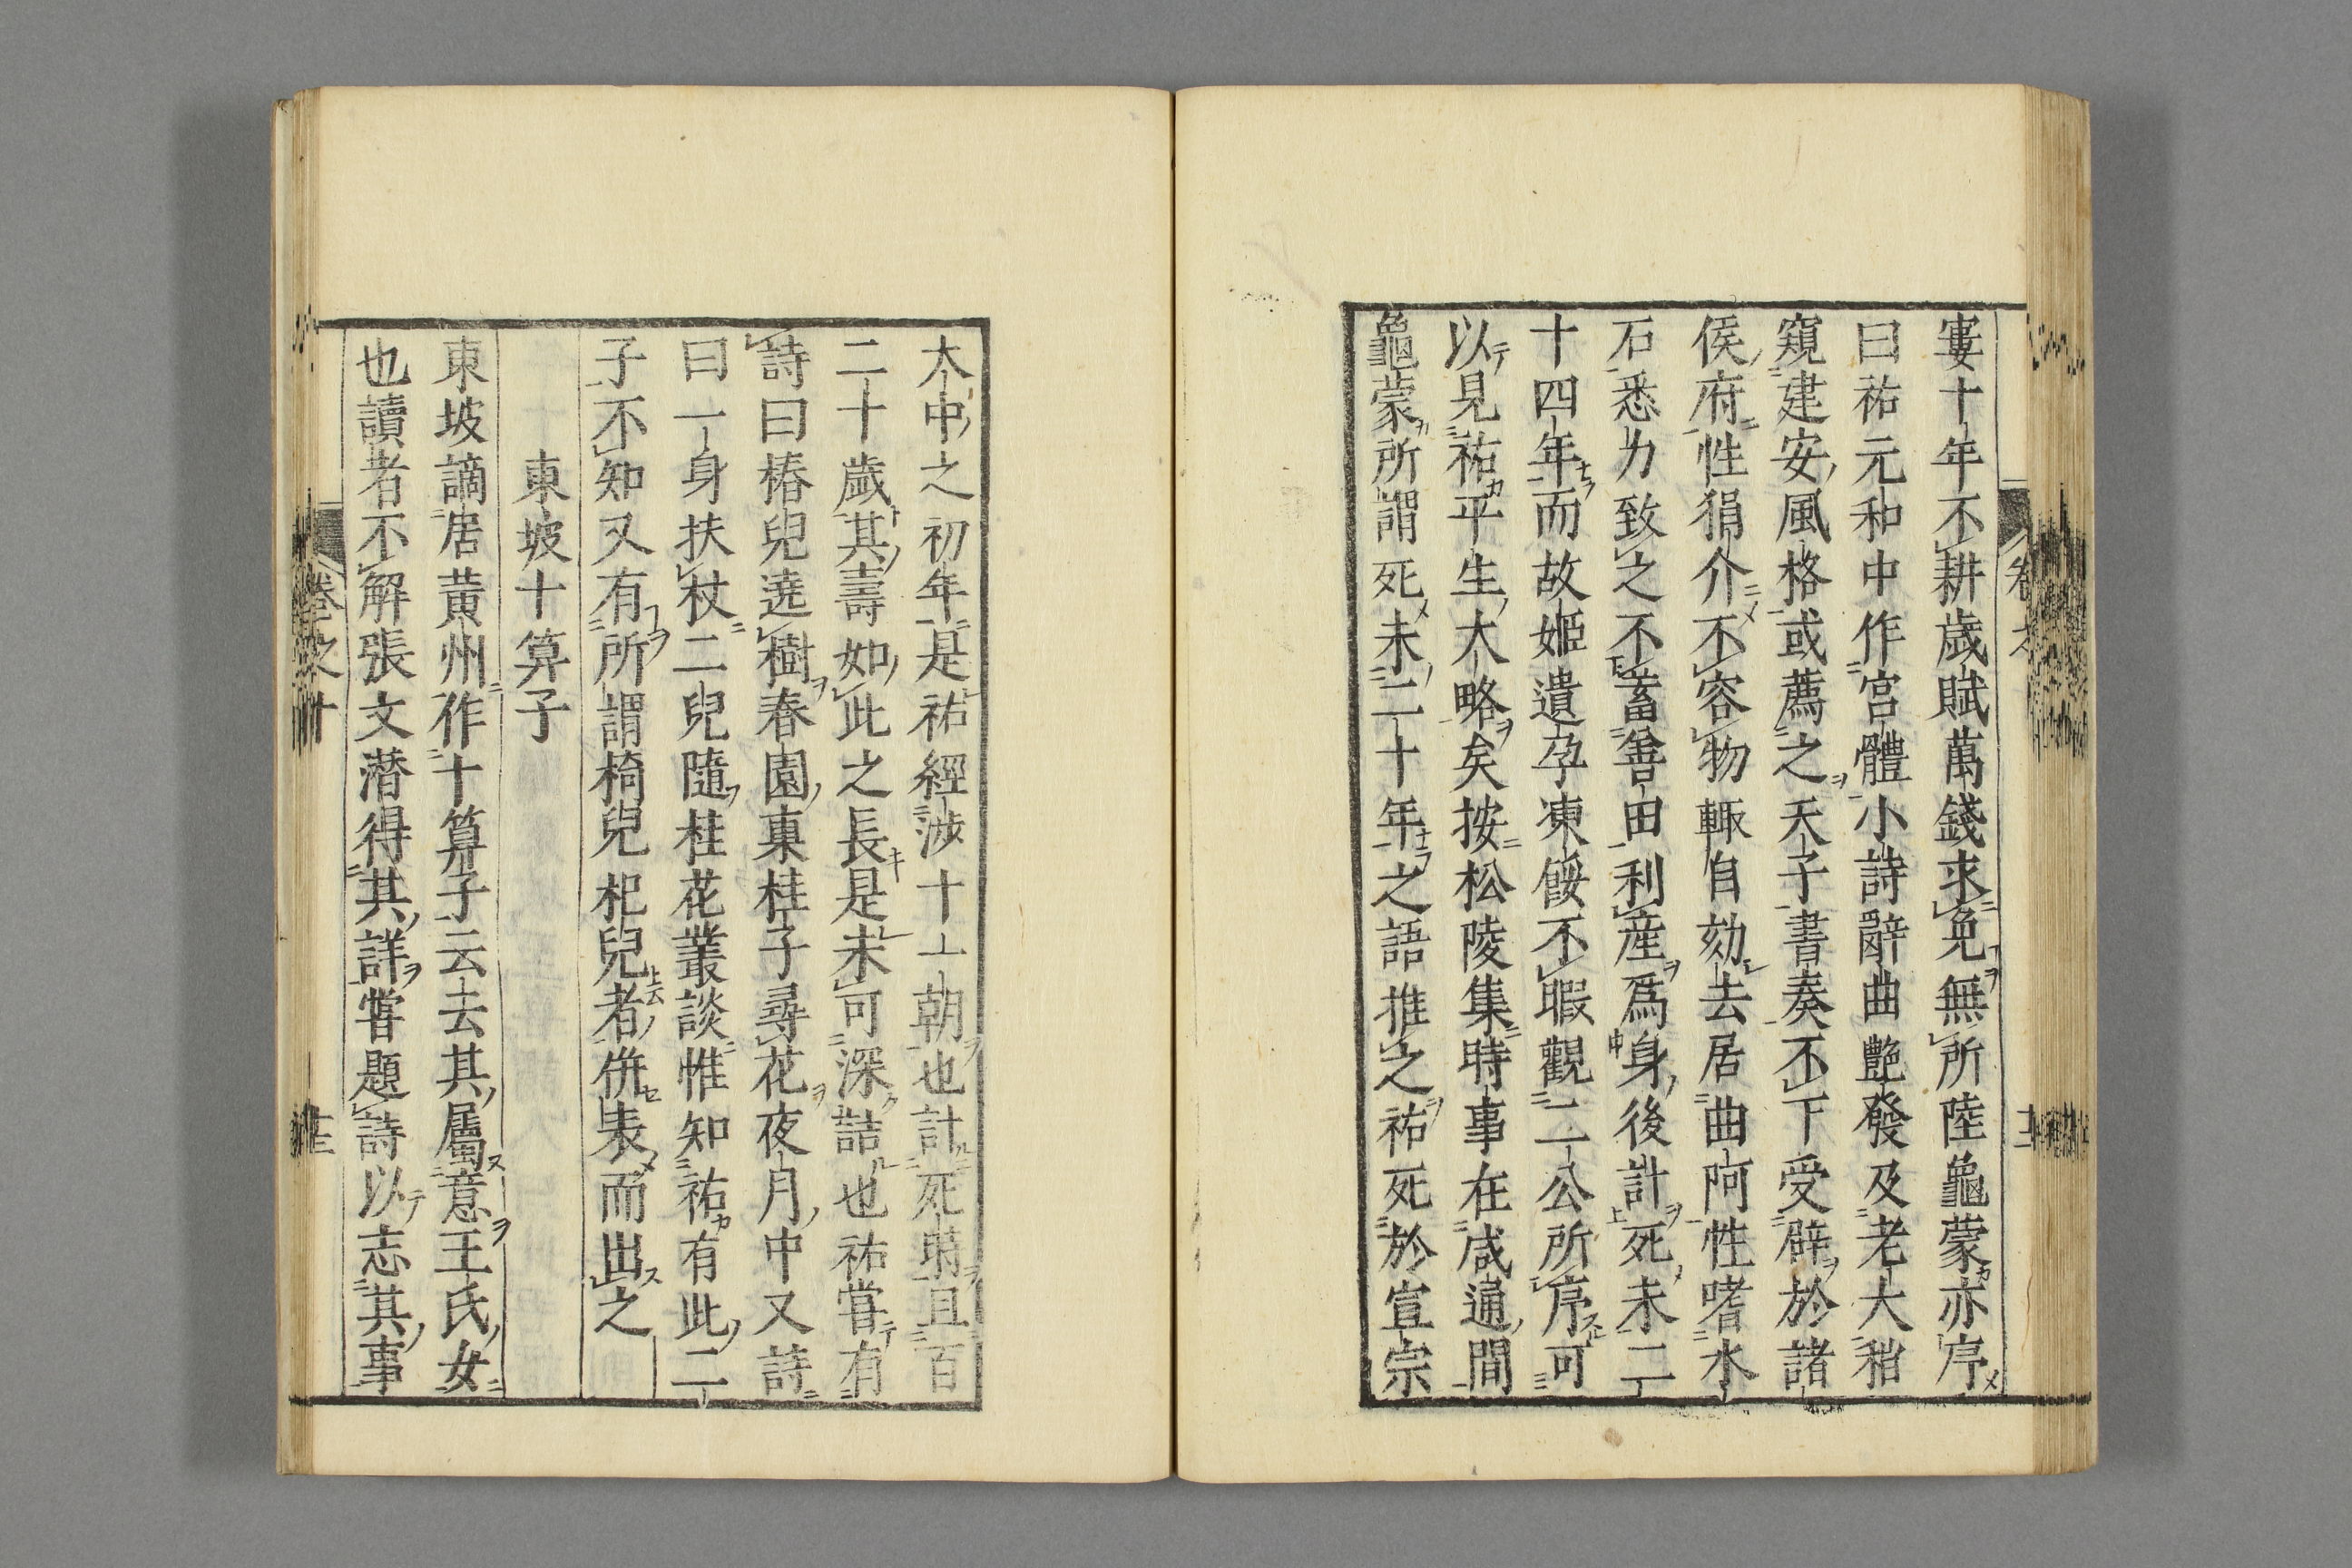 寠十年不耕歳賦萬錢求免無所陸龜蒙亦序
曰祐元和中作宮體小詩辭曲艷發及老大稍
窺建安風格或薦之天子書奏不下受辟於諸
侯府性狷介不容物輙自劾去居曲阿性嗜水
石悉力致之不蓄善田利産爲身後計死未二
十四年而故姬遺孕凍餒不暇觀二公所序可
以見祐平生大略矣按松陵集時事在咸通間
龜蒙所謂死未二十年之語推之祐死於宣宗
大中之初年是祐經渉十一朝也計死時且百
二十歳其壽如此之長是未可深詰也祐嘗有
詩曰椿兒遶樹春園裏桂子尋花夜月中又詩
曰一身扶杖二兒隨桂花叢談惟知祐有此二
子不知又有所謂椅兒杞兒者併表而出之
東坡十算子
東坡謫居黄州作十算子云去其屬意王氏女
也讀者不解張文潜得其詳嘗題詩以志其事
卷之十